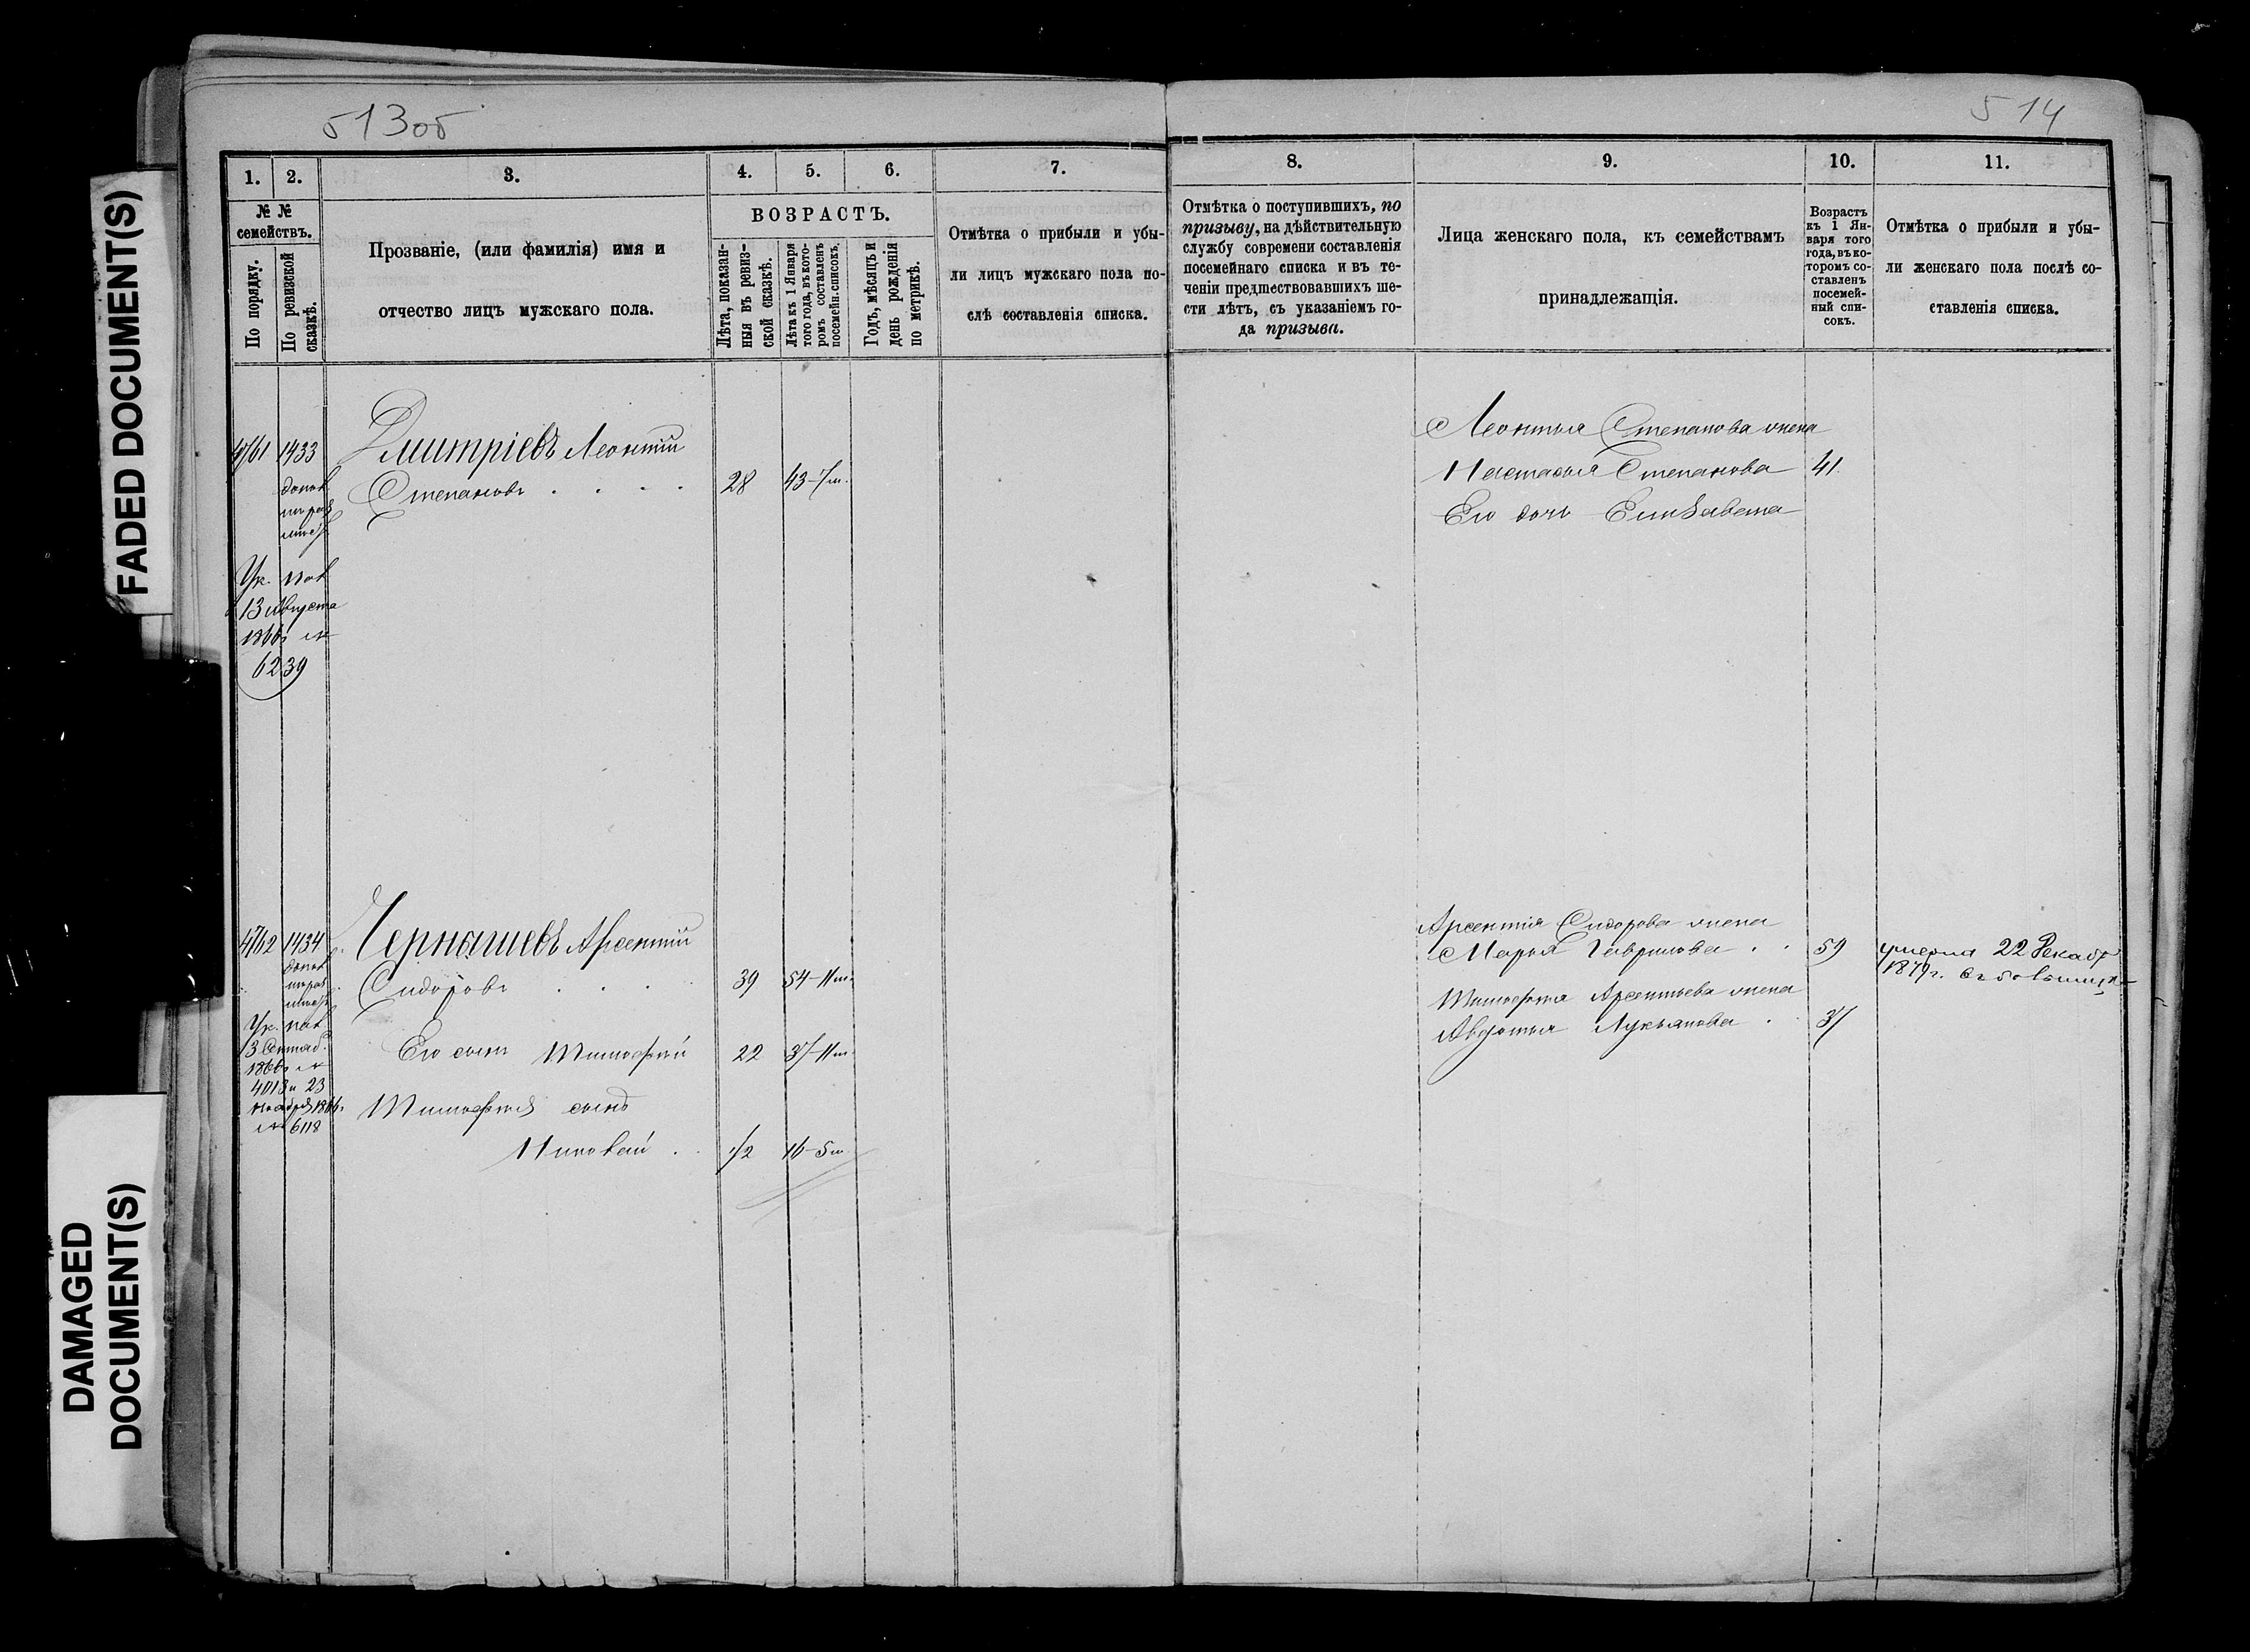 FADED DOCUMENT(S)
DAMAGED
DOCUMENT(S)
513об
514
1.
2.
3.
4.
5.
6.
7.
8.
9.
10.
11.
№ №
семействъ.
По порядку.
По ревизской
сказкѣ.
Прозваніе, (или фамилія) имя и
отчество лицъ мужскаго пола.
ВОЗРАСТЪ.
Лѣта, показан-
ныя въ ревиз-
ской сказкѣ.
Лѣта къ 1 Января
того года, въ кото-
ромъ составленъ
посемейн. списокъ.
Годъ, мѣсяцъ и
день рожденія
по метрикѣ.
Отмѣтка о прибыли и убы-
ли лицъ мужскаго пола по-
слѣ составленія списка.
Отмѣтка о поступившихъ, по
призыву, на дѣйствительную
службу современи составленія
посемейнаго списка и въ те-
ченіи предшествовавшихъ ше-
сти лѣтъ, съ указаніемъ го-
да призыва.
Лица женскаго пола, къ семействамъ
принадлежащія.
Возрастъ
къ 1 Ян-
варя того
года, въ ко-
торомъ со-
ставленъ
посемей-
ный спи-
сокъ.
Отмѣтка о прибыли и убы-
ли женскаго пола послѣ со-
ставленія списка.
4761 1433 Дмитріевъ Леонтій
Степановъ 28 43-7м.
Ук. пал
13 Августа
1866г №
6239
Леонтья Степанова жена
Настасья Степанова 41
Его дочь Елизавета
4762 1434 Чернышевъ Арсентій
Сидоровъ 39 54-11м.
Ук. пал.
3 Сентяб.
1866г №
4013 и 23
Ноября 1866г.
№ 6118
Его сынъ Тимофей 22 37-11м.
Тимофея сынъ
Николай 1/2 16-5м.
Арсентія Сидорова жена
Марья Гаврилова 59 умерла 22 Декабр
1879г.
Тимофея Арсентьева жена
Авдотья Лукьянова 37